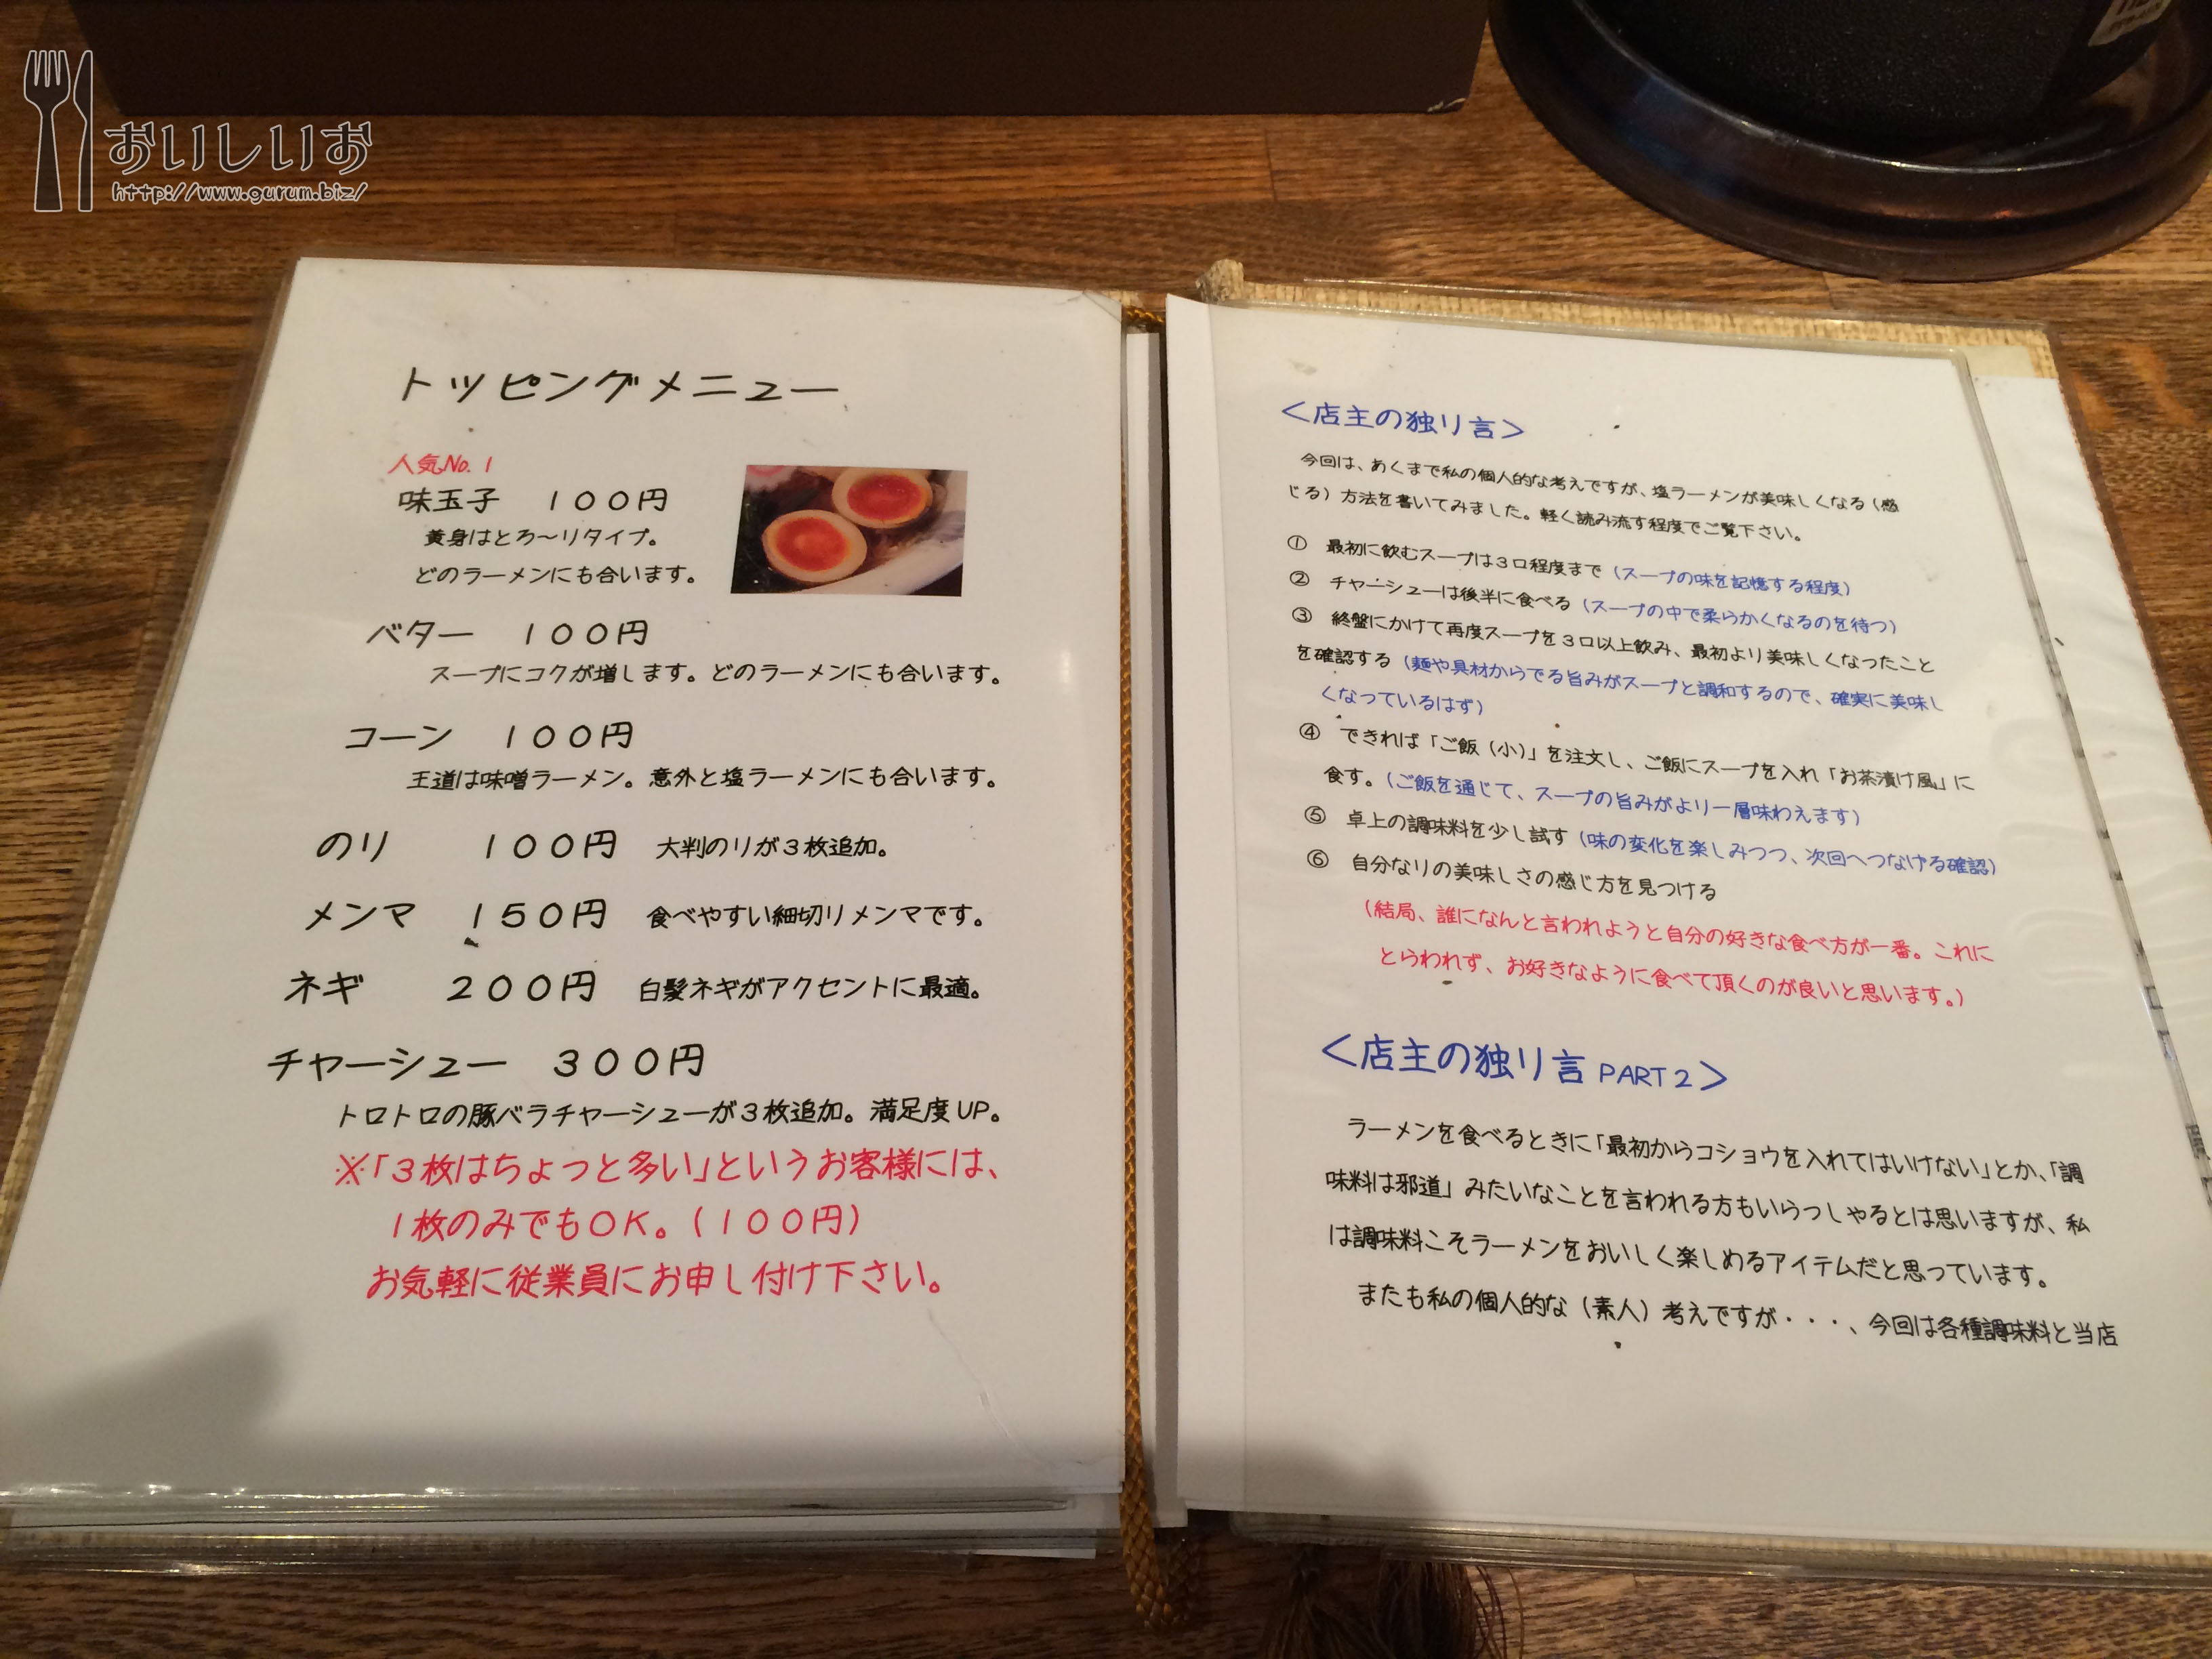 おいしいお
http://www.gurum.biz/
トッピングメニュー
人気No.1
味玉子　100円
黄身はとろ～りタイプ。
どのラーメンにも合います。
バター　100円
スープにコクが増します。どのラーメンにも合います。
コーン　100円
王道は味噌ラーメン。意外と塩ラーメンにも合います。
のり　100円　大判のりが3枚追加。
メンマ　150円　食べやすい細切りメンマです。
ネギ　200円　白髪ネギがアクセントに最適。
チャーシュー　300円
トロトロの豚バラチャーシューが3枚追加。満足度UP。
※「3枚はちょっと多い」というお客様には、
1枚のみでもOK。（100円）
お気軽に従業員にお申し付け下さい。
＜店主の独り言＞
今回は、あくまで私の個人的な考えですが、塩ラーメンが美味しくなる（感
じる）方法を書いてみました。軽く読み流す程度でご覧下さい。
①　最初に飲むスープは3口程度まで（スープの味を記憶する程度）
②　チャーシューは後半に食べる（スープの中で柔らかくなるのを待つ）
③　終盤にかけて再度スープを3口以上飲み、最初より美味しくなったこと
を確認する（麺や具材からでる旨みがスープと調和するので、確実に美味し
くなっているはず）
④　できれば「ご飯（小）」を注文し、ご飯にスープを入れ「お茶漬け風」に
食す。（ご飯を通じて、スープの旨みがより一層味わえます）
⑤　卓上の調味料を少し試す（味の変化を楽しみつつ、次回へつなげる確認）
⑥　自分なりの美味しさの感じ方を見つける
（結局、誰になんと言われようと自分の好きな食べ方が一番。これに
とらわれず、お好きなように食べて頂くのが良いと思います。）
＜店主の独り言 PART2＞
ラーメンを食べるときに「最初からコショウを入れてはいけない」とか、「調
味料は邪道」みたいなことを言われる方もいらっしゃるとは思いますが、私
は調味料こそラーメンをおいしく楽しめるアイテムだと思っています。
またも私の個人的な（素人）考えですが・・・、今回は各種調味料と当店